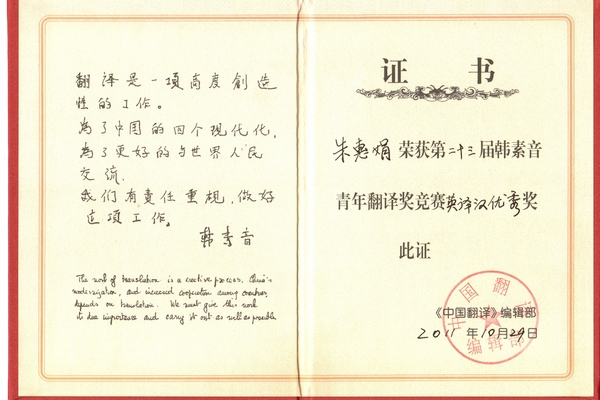 翻译是一項高度創造
性的工作。
為了中國的四个現代化,
為了更好的与世界人民
交流,
我們有責任重視,做好
这項工作。
韩素音
The work of translation is a creative process. China's
modernization, and increased cooperation among countries,
depends on translation. We must give this work
its due importance and carry it out as well as possible.
证书
朱惠娟荣获第二十三届韩素音
青年翻译奖竞赛英译汉优秀奖
此证
《中国翻译》编辑部
2011年10月29日
中国翻译
编辑部